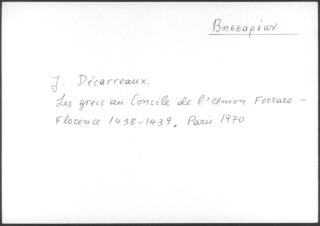 Βησσαρίων
J. Décarreaux,
Les grecs au Concile de l'union Ferrare-
Florence 1438-1439. Paris 1970